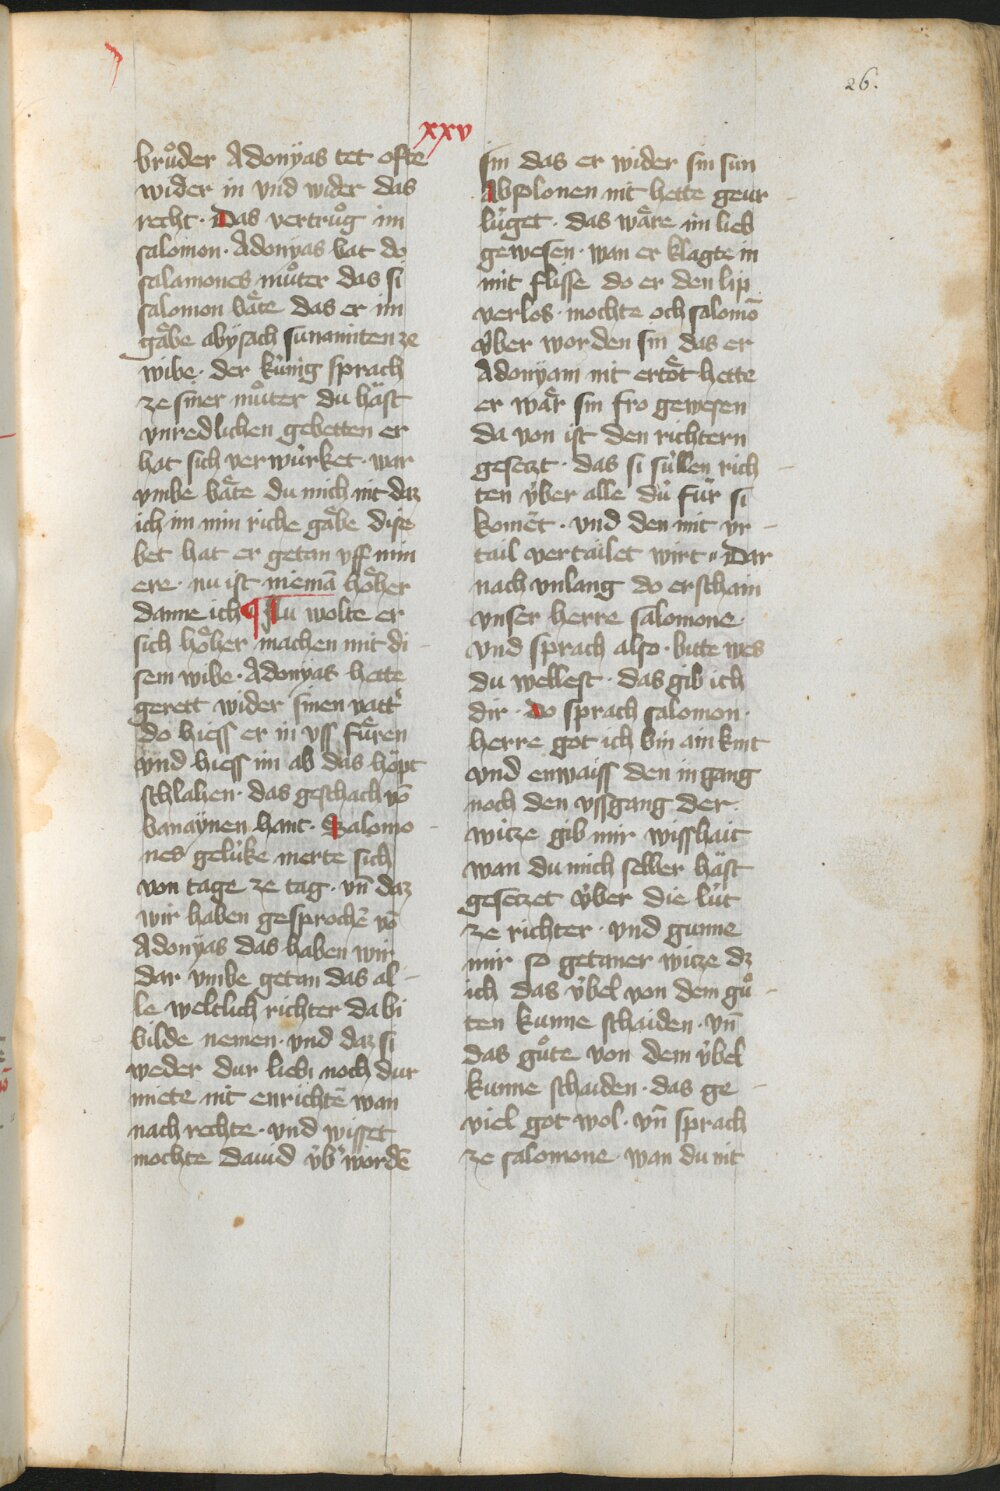 26.
xxv
bruͦder Adonÿas tet ofte
wider in vnd wider das
recht · Das vertruͦg im
salomon · Adonyas bat do
salamones muͦter das si
salomon baͤte das er im
gaͤbe abysach sunamiten ze
wibe · der kúnig sprach
ze siner muͦter du hăst
vnredlichen gebetten er
hat sich verwúrket · war
vmbe baͤte du mich nit daz
ich im min riche gaͤbe dise
bet hat er getan vff min
ere · nu ist niemā hoͤher
danne ich ¶ Nu wolte er
sich hoͤher machen mit di
sem wibe · Adonyas hette
gerett wider sinen vattʾ
do hiess er in vss fuͤren
vnd hiess im ab das hŏpt
schlahen · das geschach vō
banaÿnen hant · Salomo
nes gelúke merte sich
von tage ze tag · vn̄ daz
wir haben gesprochē vō
Adonÿas das haben wir
dar vmbe getan das al
le weltlich richter da bi
bilde nemen · vnd daz si
weder dur liebi noch dur
miete nit enrichtē wan
nach rechte · vnd wisset
mochte dauid v́bʾ wordē
sin das er wider sin sun
Absolonen nit hette geur
lúget · das waͤre im lieb
gewesen · wan er klagte in
mit flisse do er den lip
verlos · mochte och salomō
v́ber worden sin das er
Adonyam nit ertoͤt hette
er waͤr sin fro gewesen
da von ist den richtern
gesetzt · das si súllen rich
ten v́ber alle dú fúr si
komēt · vnd den mit vr
tail vertailet wirt · Dar
nach vnlang do erschain
vnser herre salomone ·
vnd sprach also · bitte wes
du wellest · das gib ich
dir · Do sprach salomon ·
herre got ich bin ain kint
vnd enwaiss den in gang
noch den vssgang der
witze gib mir wisshait
wan du mich selber hăst
gesetzet v́ber die lút
ze richter · vnd gunne
mir so getaner witze dz
ich das v́bel von dem guͦ
ten kunne schaiden · vn̄
das guͦte von dem v́bel
kunne schaiden · das ge
viel got wol · vn̄ sprach
ze salomone · wan du nit